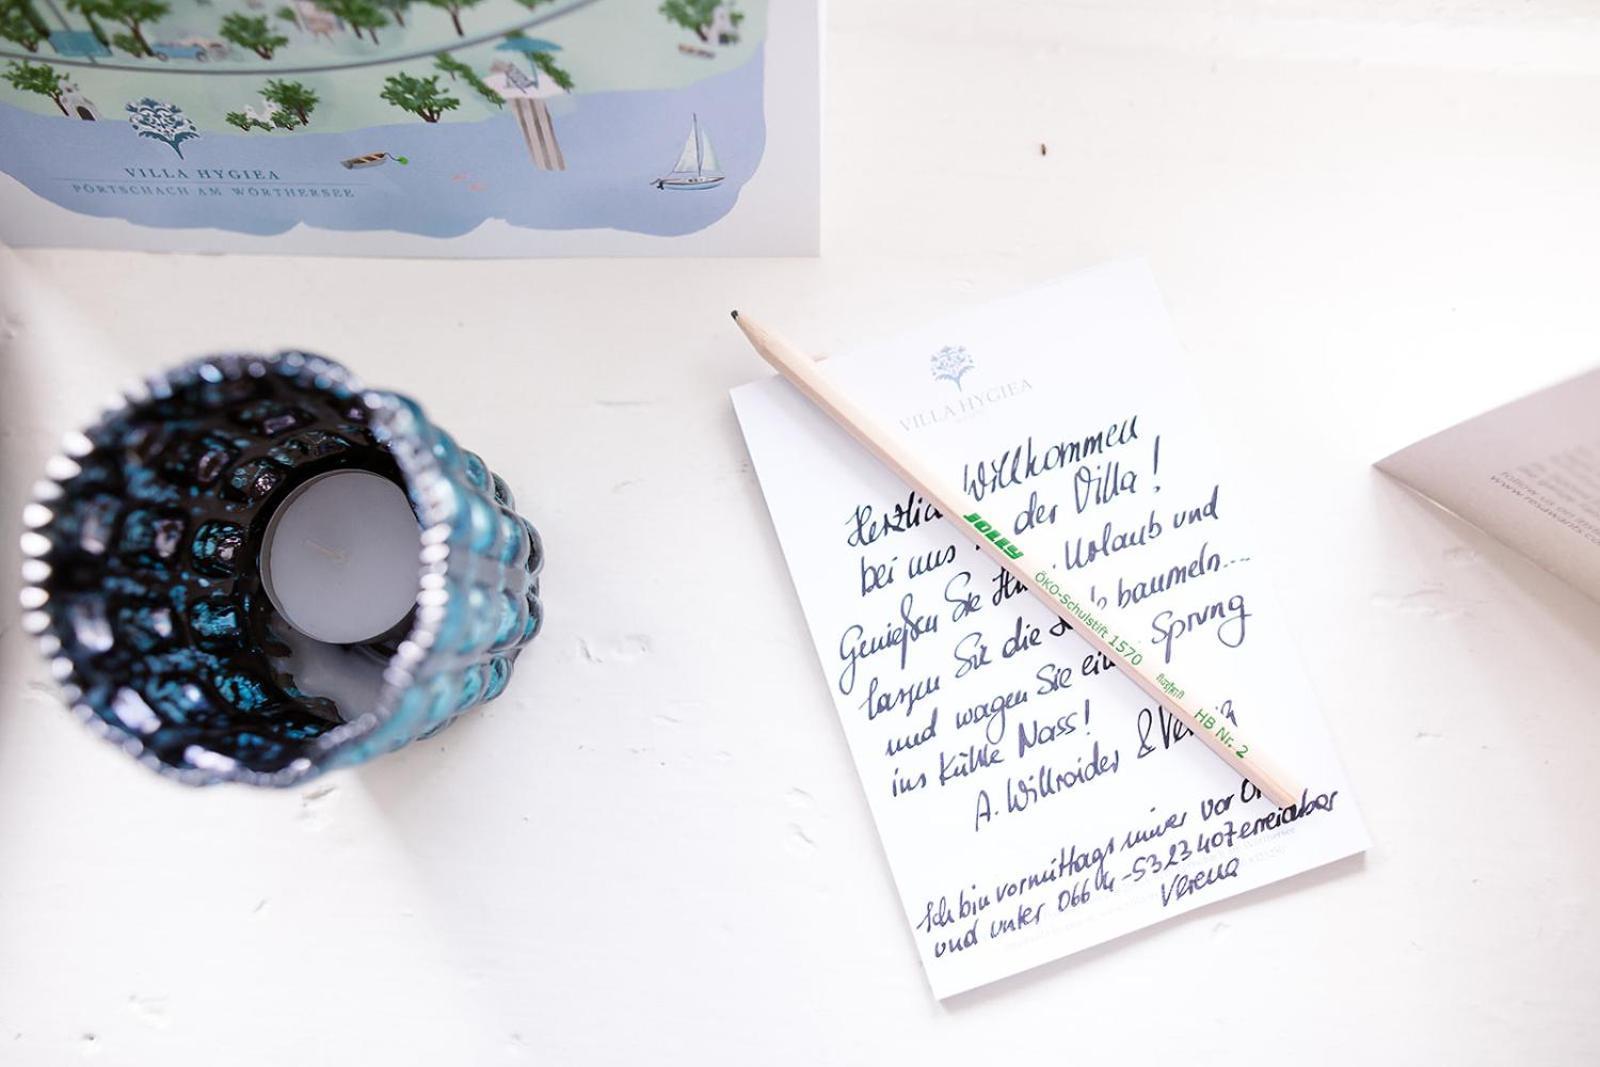 VILLA HYGIEA
PÖRTSCHACH AM WÖRTHERSEE
VILLA HYGIEA
Herzlich Willkommen
bei uns in der Villa!
Genießen Sie Ihren Urlaub und
lassen Sie die Seele baumeln...
und wagen Sie einen Sprung
ins kühle Nass!
A. Willroider & Verena
Ich bin vormittags immer vor Ort
und unter 0664-5323407 erreichbar
Verena
JOLLY ÖKO-Schulstift 1570 HB Nr. 2
Follow us on